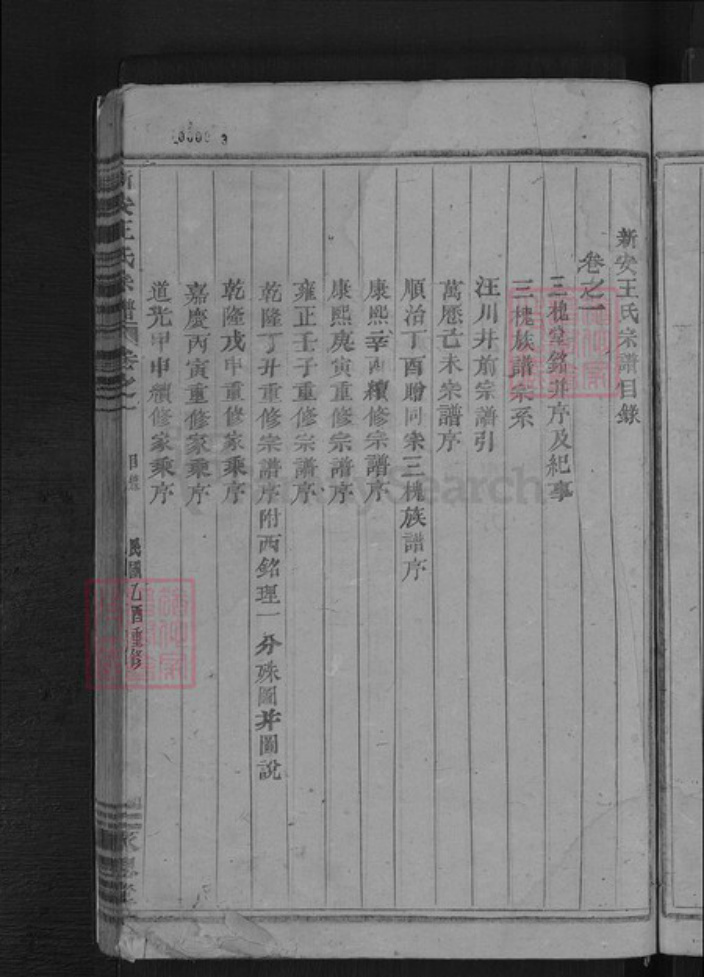 新安王氏宗譜目錄
卷之一
三槐堂銘并序及紀事
三槐族譜宗系
汪川井前宗譜引
萬歷己未宗譜序
順治丁酉贈同宗三槐族譜序
康熙辛酉續修宗譜序
康熙庚寅重修宗譜序
雍正壬子重修宗譜序
乾隆丁丑重修宗譜序附西銘理一分殊圖并圖說
乾隆戊申重修家乘序
嘉慶丙寅重修家乘序
道光甲申續修家乘序
新安王氏宗譜 卷之一
目錄
民國乙酉重修
FamilySearch